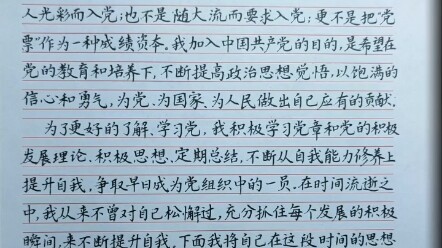 人光彩而入党；也不是随大流而要求入党；更不是把“党
票”作为一种成绩资本。我加入中国共产党的目的，是希望在
党的教育和培养下，不断提高政治思想觉悟，以饱满的
信心和勇气，为党、为国家、为人民做出自己应有的贡献。
为了更好的了解、学习党，我积极学习党章和党的积极
发展理论、积极思想、定期总结，不断从自我能力修养上
提升自我，争取早日成为党组织中的一员。在时间流逝之
中，我从来不曾对自己松懈过，充分抓住每个发展的积极
瞬间，来不断提升自我，下面我将自己在这段时间的思想